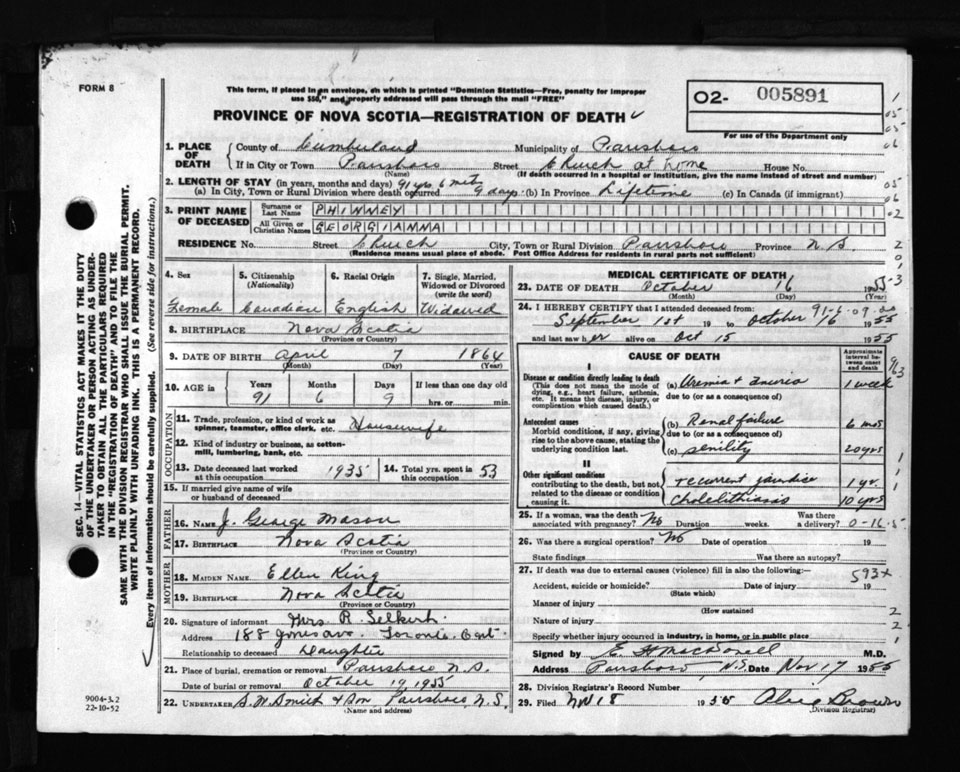 FORM 8
This form, if placed in an envelope, on which is printed "Dominion Statistics—Free, penalty for improper
use $50," and properly addressed will pass through the mail "FREE"
02- 005891
For use of the Department only
PROVINCE OF NOVA SCOTIA—REGISTRATION OF DEATH
1. PLACE OF DEATH
County of Cumberland Municipality of Parrsboro
If in City or Town Parrsboro Street Church at home House No.
(Name) (If death occurred in a hospital or institution, give the name instead of street and number)
2. LENGTH OF STAY (in years, months and days) 91 yrs 6 mths
(a) In City, Town or Rural Division where death occurred 9 days (b) In Province Lifetime (c) In Canada (if immigrant)
3. PRINT NAME OF DECEASED
Surname or Last Name PHINNEY
All Given or Christian Names GEORGIANNA
RESIDENCE No. Street Church City, Town or Rural Division Parrsboro Province N.S.
(Residence means usual place of abode. Post Office Address for residents in rural parts not sufficient)
4. Sex
Female
5. Citizenship (Nationality)
Canadian
6. Racial Origin
English
7. Single, Married, Widowed or Divorced (write the word)
Widowed
8. BIRTHPLACE Nova Scotia
(Province or Country)
9. DATE OF BIRTH April 7 1864
(Month) (Day) (Year)
10. AGE in Years Months Days If less than one day old
91 6 9 hrs. or min.
OCCUPATION
11. Trade, profession, or kind of work as
spinner, teamster, office clerk, etc. Housewife
12. Kind of industry or business, as cotton-
mill, lumbering, bank, etc.
13. Date deceased last worked at this occupation 1935
14. Total yrs. spent in this occupation 53
15. If married give name of wife
or husband of deceased
FATHER
16. NAME J. George Mason
17. BIRTHPLACE Nova Scotia
(Province or Country)
MOTHER
18. MAIDEN NAME Ellen King
19. BIRTHPLACE Nova Scotia
(Province or Country)
20. Signature of informant Mrs R. Selkirk
Address 188 Jones ave. Toronto. Ont.
Relationship to deceased Daughter
21. Place of burial, cremation or removal Parrsboro N.S.
Date of burial or removal October 19, 1955
22. UNDERTAKER S.W. Smith & Son Parrsboro N.S.
(Name and address)
MEDICAL CERTIFICATE OF DEATH
23. DATE OF DEATH October 16 1955
(Month) (Day) (Year)
24. I HEREBY CERTIFY that I attended deceased from: 91-6-09-
September 1st 19 to October 16 1955
last saw her alive on Oct 15 1955
CAUSE OF DEATH
Approximate interval between onset and death
I
Disease or condition directly leading to death
(This does not mean the mode of
dying, e.g., heart failure, asthenia,
etc. It means the disease, injury, or
complication which caused death.)
(a) Uremia + anuria 1 week
due to (or as a consequence of)
Antecedent causes
Morbid conditions, if any, giving
rise to the above cause, stating the
underlying condition last.
(b) Renal failure 6 mos
due to (or as a consequence of)
(c) senility 20 yrs
II
Other significant conditions
contributing to the death, but not
related to the disease or condition
causing it.
recurrent jaundice 1 yr.
cholelithiasis 10 yrs
25. If a woman, was the death associated with pregnancy? No Duration weeks. Was there a delivery? 0-16-5
26. Was there a surgical operation? No Date of operation 19
State findings Was there an autopsy?
27. If death was due to external causes (violence) fill in also the following:— 593x
Accident, suicide or homicide? Date of injury 19
(State which)
Manner of injury
(How sustained
Nature of injury
Specify whether injury occurred in industry, in home, or in public place
Signed by E. H MacDonell M.D.
Address Parrsboro N.S. Date Nov 17 1955
28. Division Registrar's Record Number
29. Filed Nov 18 1955
Brown
(Division Registrar)
SEC. 14—VITAL STATISTICS ACT MAKES IT THE DUTY
OF THE UNDERTAKER OR PERSON ACTING AS UNDER-
TAKER TO OBTAIN ALL THE PARTICULARS REQUIRED
IN THE "REGISTRATION OF DEATH" AND TO FILE THE
SAME WITH THE DIVISION REGISTRAR WHO SHALL ISSUE THE BURIAL PERMIT.
WRITE PLAINLY WITH UNFADING INK. THIS IS A PERMANENT RECORD.
Every item of information should be carefully supplied. (See reverse side for instructions.)
9004-3.2
22-10-52